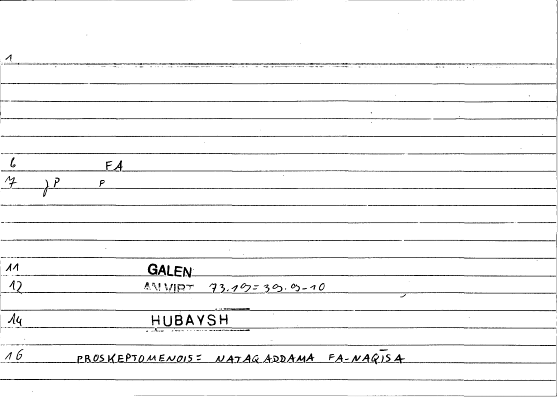 1
6 FA
7 jP P
11 GALEN
12 AN VIRT 73.19=39.9-10
14 HUBAYSH
16 PROSKEPTOMENOIS= NATAQADDAMA FA-NAQĪSA